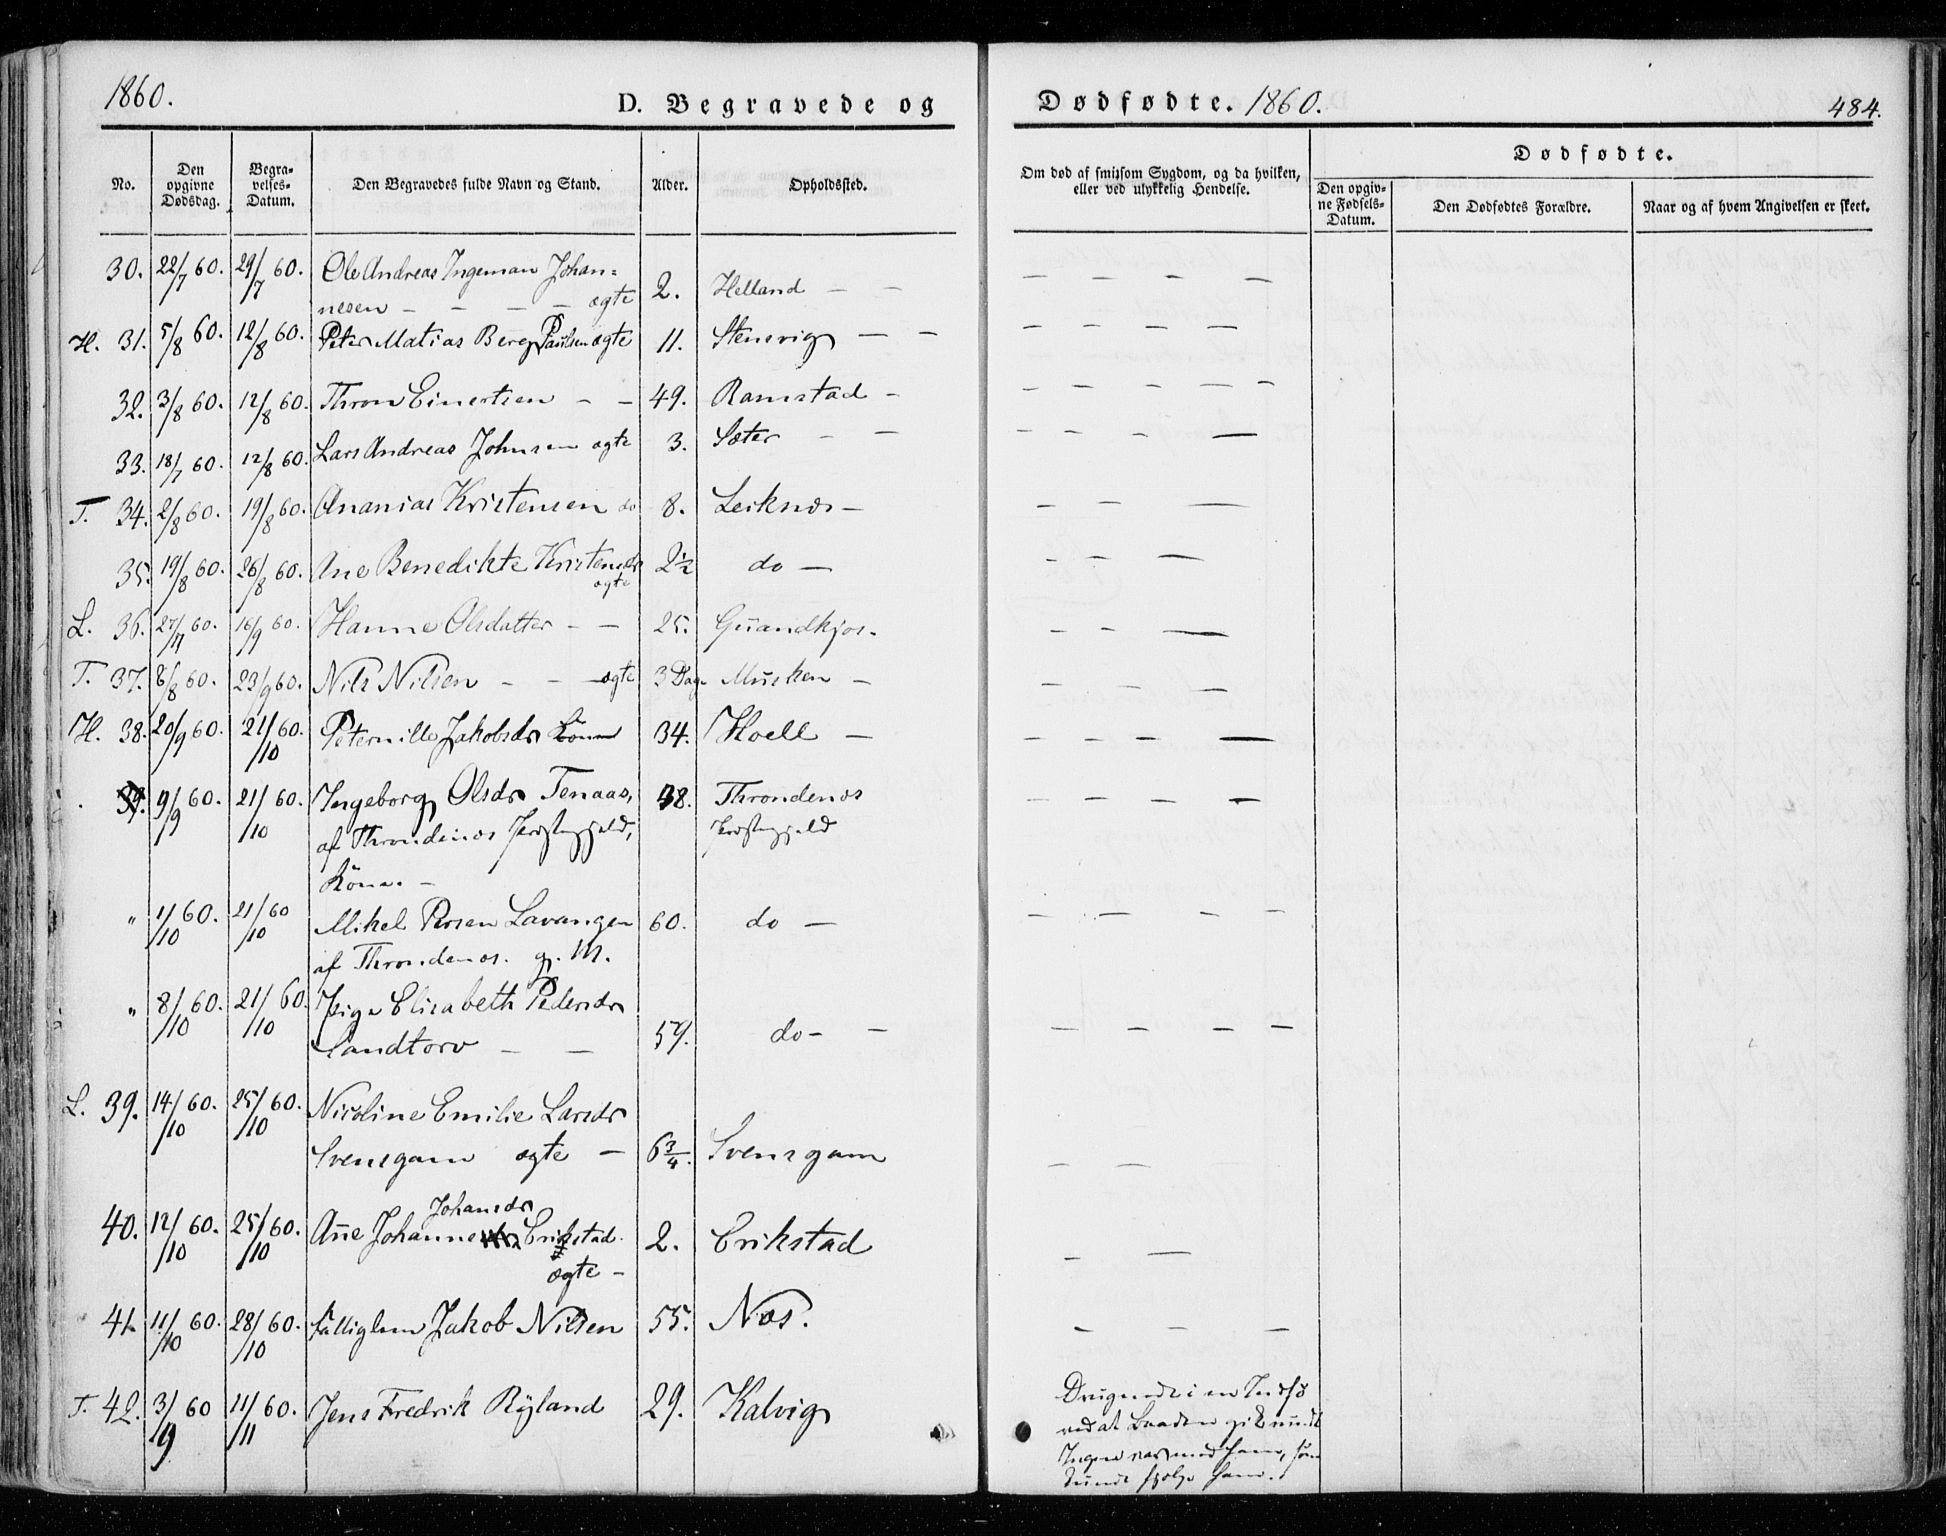 1860.
D. Begravede og
Dødfødte. 1860.
484.
No.
Den opgivne Dødsdag.
Begravelses-Datum.
Den Begravedes fulde Navn og Stand.
Alder.
Opholdssted.
Om død af smitsom Sygdom, og da hvilken, eller ved ulykkelig Hendelse.
Dødfødte.
Den opgivne Fødsels-Datum.
Den Dødfødtes Forældre.
Naar og af hvem Angivelsen er skeet.
30. 22/7 60. 29/7 60. Ole Andreas Ingeman Johan=
nesen - - - - ægte 2. Helland - -
H. 31. 5/8 60. 12/8 60. Peter Matias Berg Paulsen ægte 11. Stensvig - -
32. 3/8 60. 12/8 60. Thron Einertsen - - 49. Ramstad -
33. 18/7 60. 12/8 60. Lars Andreas Johnsen ægte 3. Sæter - -
T. 34. 2/8 60. 19/8 60. Ananias Kristensen do 8. Leiknæs -
35. 19/8 60. 26/8 60. Ane Benedikte Kristensdr 2½ do -
ægte
L. 36. 27/7 60. 16/9 60. Hanne Olsdatter - - 25. Grandkjos.
T. 37. 6/8 60. 23/9 60. Nils Nilsen - - ægte 3 Dag. Musken -
H. 38. 20/9 60. 21/10 60. Peternille Jakobsdr Kone 34. Hoell -
39. 9/9 60. 21/10 60. Ingeborg Olsdr Tenaas, 48. Throndenæs
af Throndenæs Præstegjeld, Præstegjeld
Kone. -
" 1/10 60. 21/10 60 Mikel Persen Lavangen 60. do -
af Throndenæs. g. M.
" 8/10 60. 21/10 60. Pige Elisabeth Pedersdr
Sandtorv - - 59. do - -
L. 39. 14/10 60. 25/10 60. Nicoline Emilie Larsdr
Svensgam ægte - 6¾. Svensgam
Johansdr
40. 12/10 60. 25/10 60. Ane Johanne Erikstad. 2. Erikstad
ægte -
41. 11/10 60. 28/10 60. Fattiglem Jakob Nilsen 55. Næs.
T. 42. 3/9 60 11/11 60. Jens Fredrik Ryland 29. Kalvig
ved at Baaden gik rundt
Ingen var med ham, som
kunde hjelpe ham.